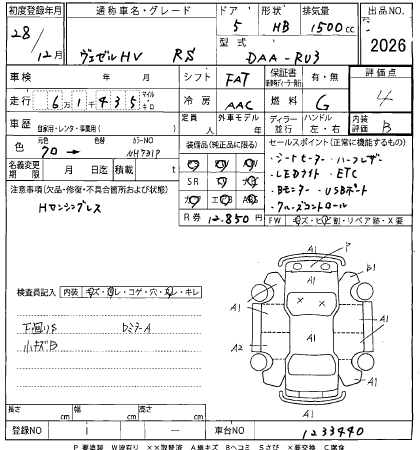 初度登録年月 通称車名・グレード ドア 形状 排気量 出品NO.
28/12月 ヴェゼルHV RS 5 HB 1500cc 2026
型式 DAA-RU3
車検 年 月 シフト FAT 保証書 有・無 評価点
走行 6万1千435 マイル キロ 冷房 AAC 燃料 G 4
車歴 自家用・レンタ・事業用( ) 定員 人 外車モデル 年 ディーラー 並行 ハンドル 左・右 内装評価 B
色 元色 クロ→ 替色 カラーNO NH731P 装備品(純正品に限る) セールスポイント(正常に機能するもの)
名義変更期限 月 日迄 積載 t SR
・シートヒーター ・ハーフレザー
・LEDライト ・ETC
・Bモニター ・USBポート
・クルーズコントロール
注意事項(欠品・修復・不具合箇所および状態)
Hセンシングレス
R券 12,850円 FW キズ・ヒビ有・リペア跡・X要
検査員記入 内装 キズ・ヨゴレ・コゲ・穴・スレ・キレ
下廻りS
小キズB
A1 P
A1 B1
A1 A1 A1
A2
A1 A1
A1
長さ cm 幅 cm 高さ cm
登録NO 車台NO 1233440
P 要塗装 W波有り ××取替済 A線キズ Bヘコミ Sさび ×要交換 C腐食